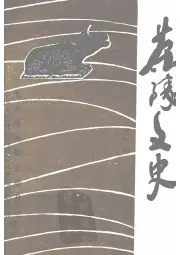 茶陵文史